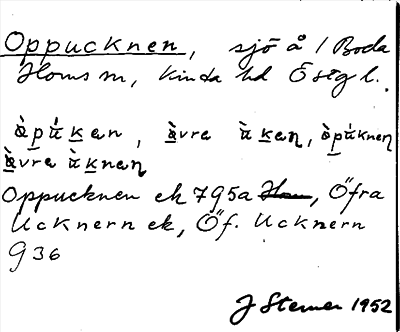 Oppucknen, sjö å / Boda
Horns sn, Kinda hd Östg l.
òpúkan, àvre ùkaɳ, òpúknen
àvre ùknaɳ
Oppucknen ek 795a, Öfra
Ucknern ek, Öf. Ucknern
936
J Sterner 1952